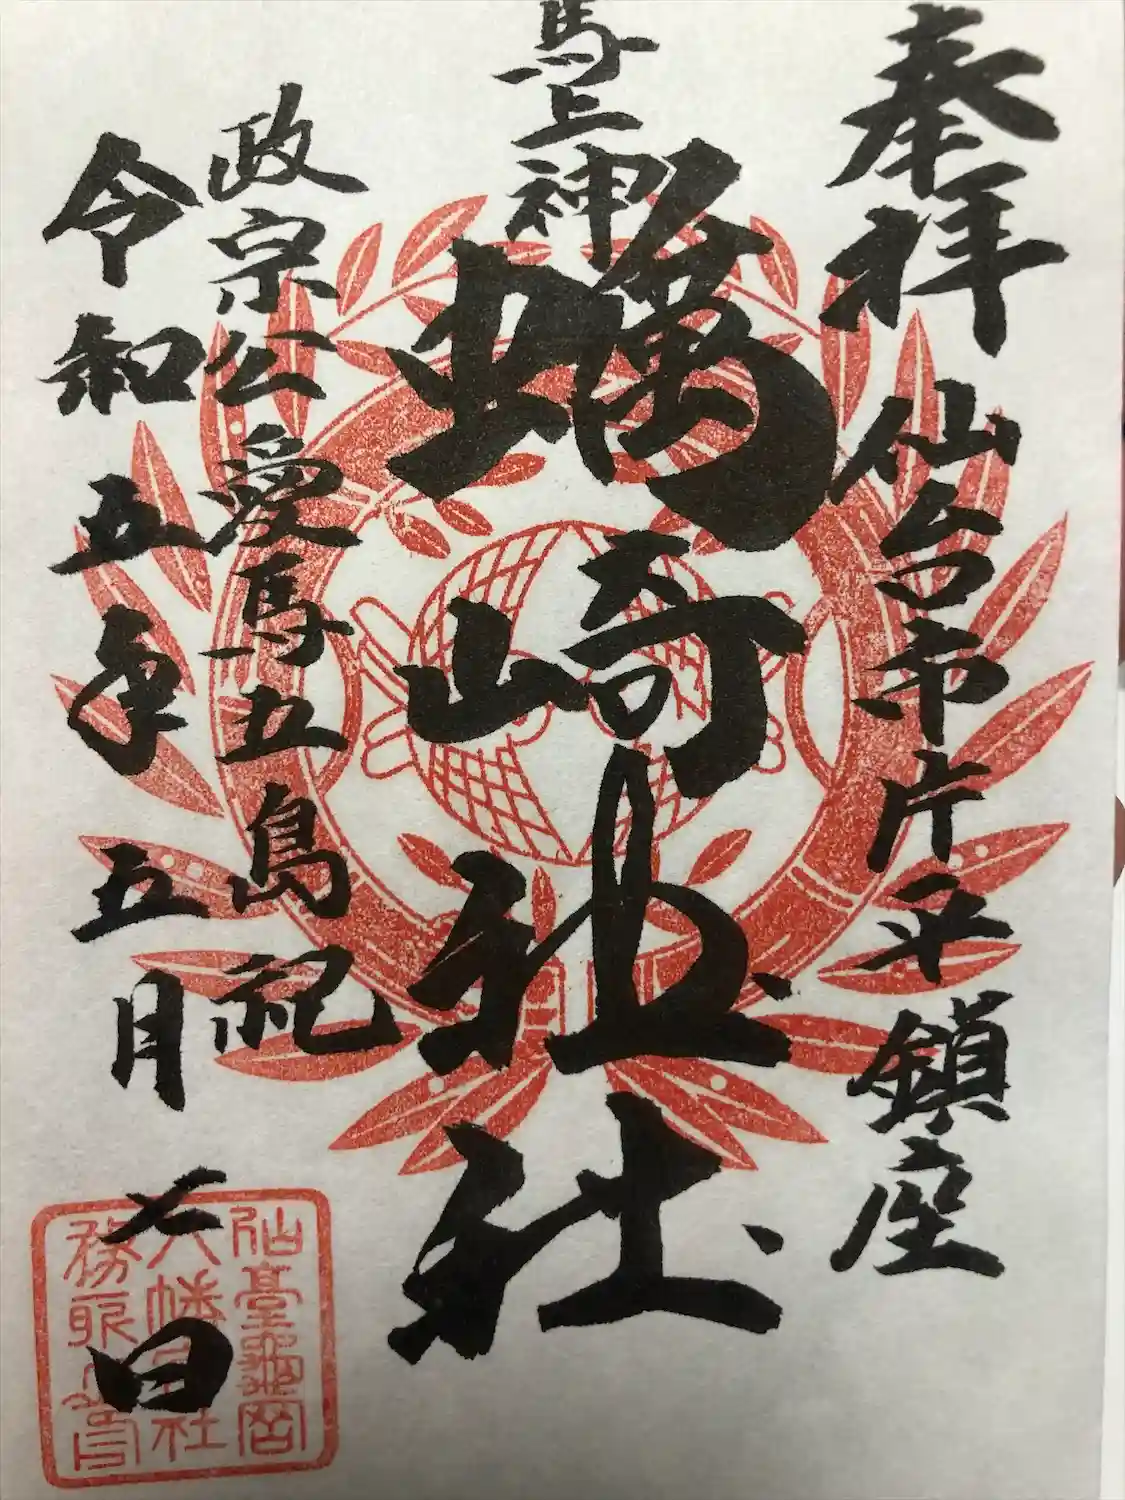 奉拝
仙台市片平鎮座
馬上神
蠣崎神社
政宗公愛馬五島祀
令和五年五月七日
仙臺龜岡
八幡神社
務所之印